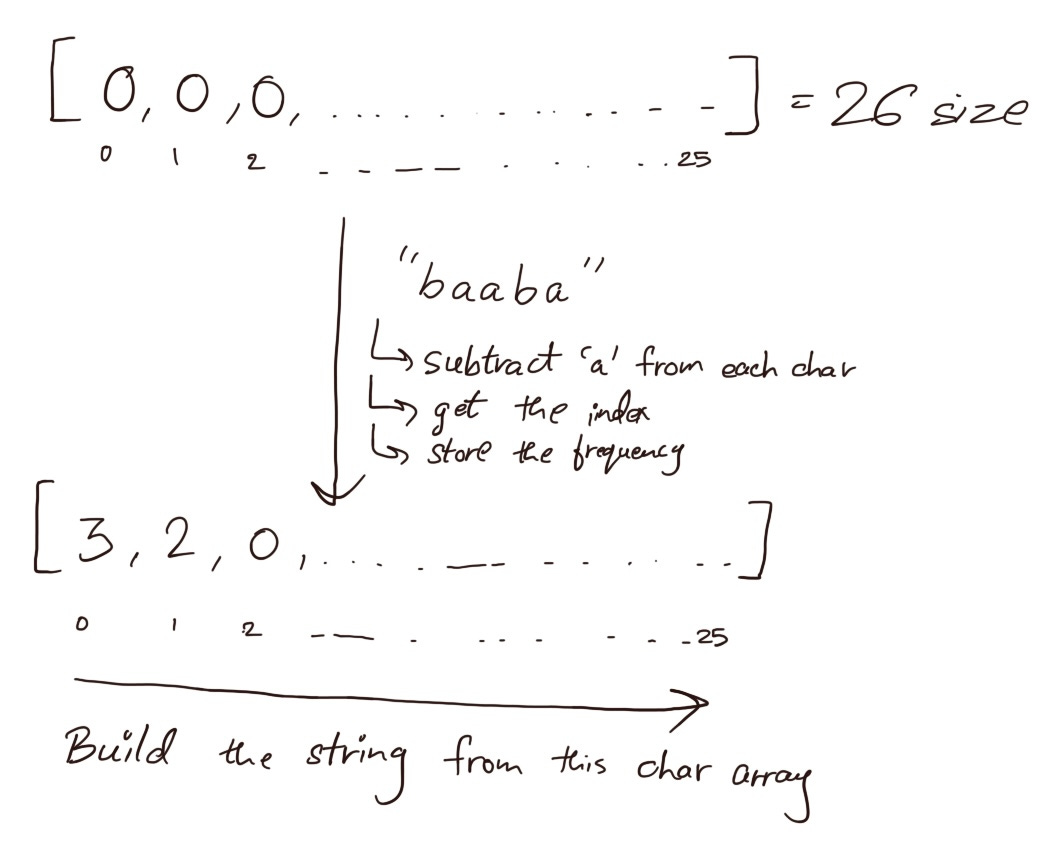 [0, 0, 0, ..............] = 26 size
0 1 2 ............ 25
"baaba"
subtract 'a' from each char
get the index
store the frequency
[3, 2, 0, ..............]
0 1 2 ............ 25
Build the string from this char array